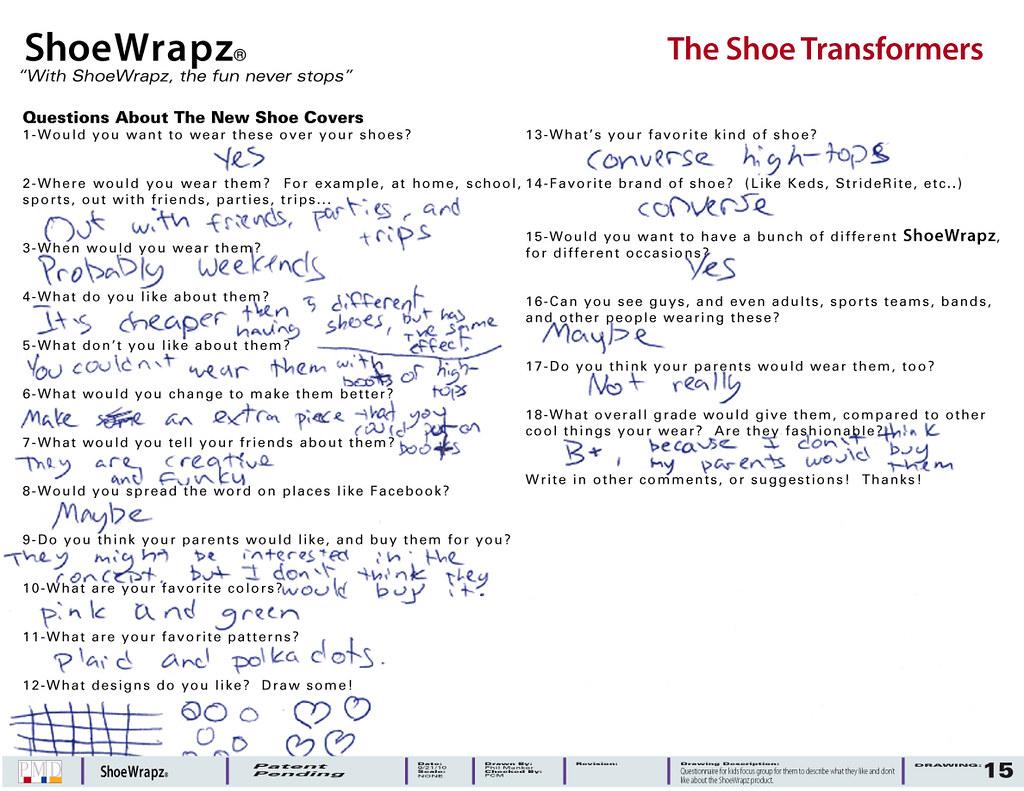 ShoeWrapz®
"With ShoeWrapz, the fun never stops"
The Shoe Transformers
Questions About The New Shoe Covers
1-Would you want to wear these over your shoes?
Yes
2-Where would you wear them? For example, at home, school,
sports, out with friends, parties, trips...
Out with friends, parties, and
trips
3-When would you wear them?
Probably weekends
4-What do you like about them?
It's cheaper then 3 different
having shoes, but has
the same
effect.
5-What don't you like about them?
You couldn't wear them with
boots or high-
tops
6-What would you change to make them better?
Make an extra piece that you
could put on
boots
7-What would you tell your friends about them?
They are creative
and funky
8-Would you spread the word on places like Facebook?
Maybe
9-Do you think your parents would like, and buy them for you?
They might be interested in the
concept, but I don't think they
would buy it.
10-What are your favorite colors?
pink and green
11-What are your favorite patterns?
plaid and polka dots.
12-What designs do you like? Draw some!
13-What's your favorite kind of shoe?
converse high-tops
14-Favorite brand of shoe? (Like Keds, StrideRite, etc..)
converse
15-Would you want to have a bunch of different ShoeWrapz,
for different occasions?
Yes
16-Can you see guys, and even adults, sports teams, bands,
and other people wearing these?
Maybe
17-Do you think your parents would wear them, too?
Not really
18-What overall grade would give them, compared to other
cool things your wear? Are they fashionable?
B+, because I don't think
my parents would buy
them
Write in other comments, or suggestions! Thanks!
PMD
ShoeWrapz®
Patent
Pending
Date:
9/21/10
Scale:
NONE
Drawn By:
Phil Manker
Checked By:
PCM
Revision:
Drawing Description:
Questionnaire for kids focus group for them to describe what they like and don't
like about the ShoeWrapz product.
DRAWING: 15